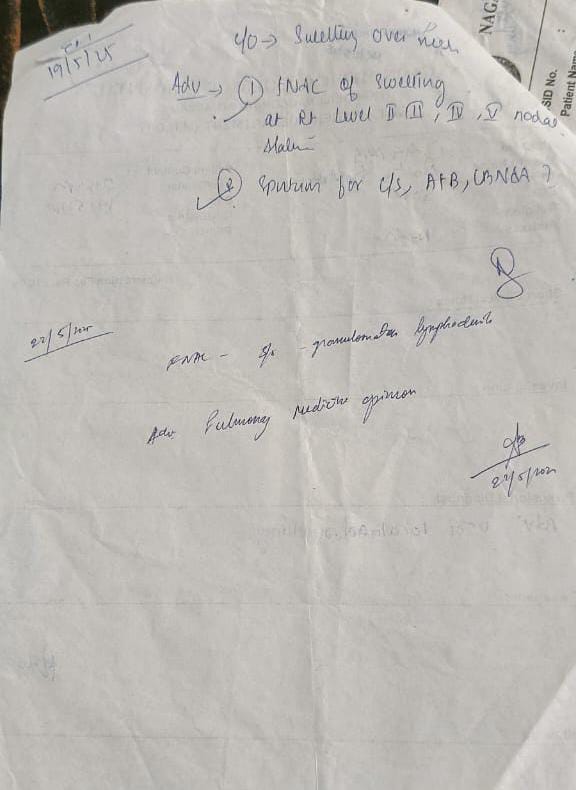 19/5/25
c/o → Swelling over neck
Adv → ① FNAC of Swelling
at Rt Level II III, IV, V nodal
② Sputum for C/S, AFB, CBNAA ?
22/5/2025
FNAC - s/o - granulomatous lymphadenitis
Adv Pulmonary Medicine opinion
22/5/2025
NAG
SID No.
Patient Name